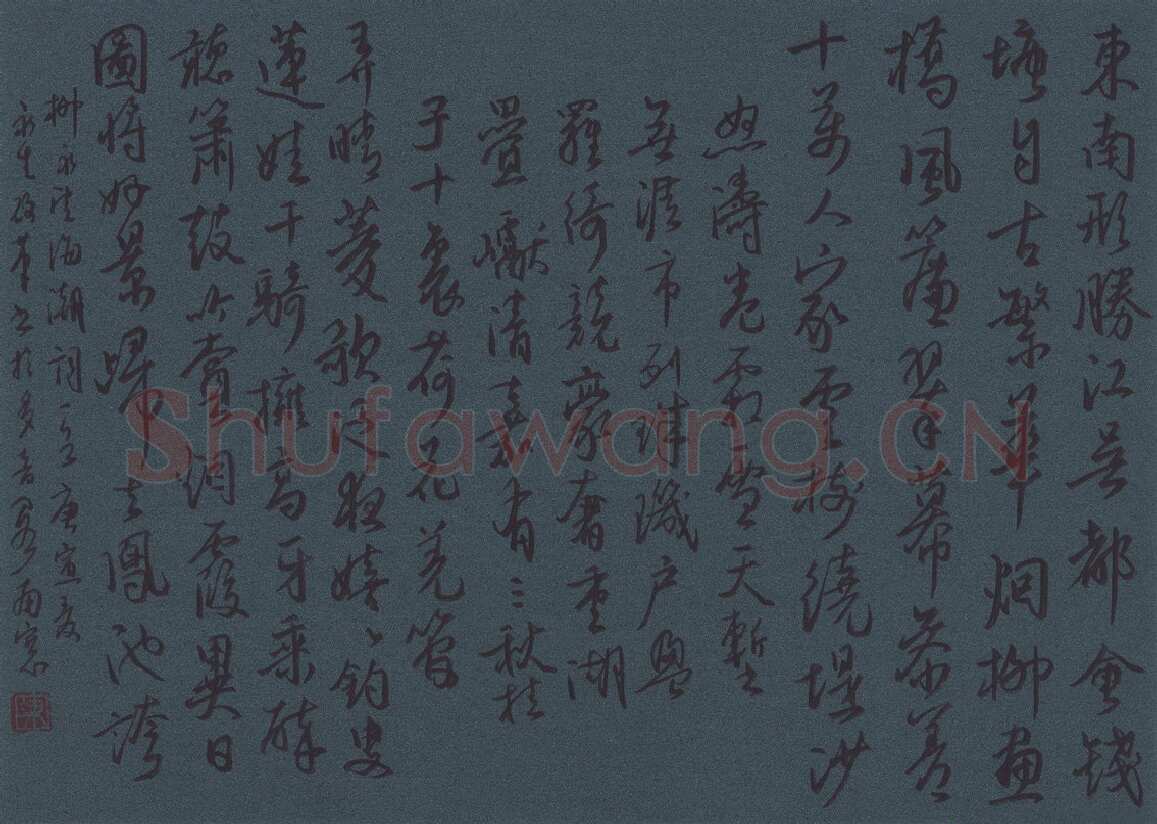 東南形勝江吳都會錢
塘自古繁華烟柳畫
橋風簾翠幕參差
十萬人家雲樹繞堤沙
怒濤卷霜雪天塹
無涯市列珠璣戶盈
羅綺競豪奢重湖
疊巘清嘉有三秋桂
子十裏荷花羌管
弄晴菱歌泛夜嬉嬉釣叟
蓮娃千騎擁高牙乘醉
聽簫鼓吟賞烟霞異日
圖將好景歸去鳳池誇
柳永望海潮詞一首庚寅夏
永生書於雨窗
Shufawang.CN